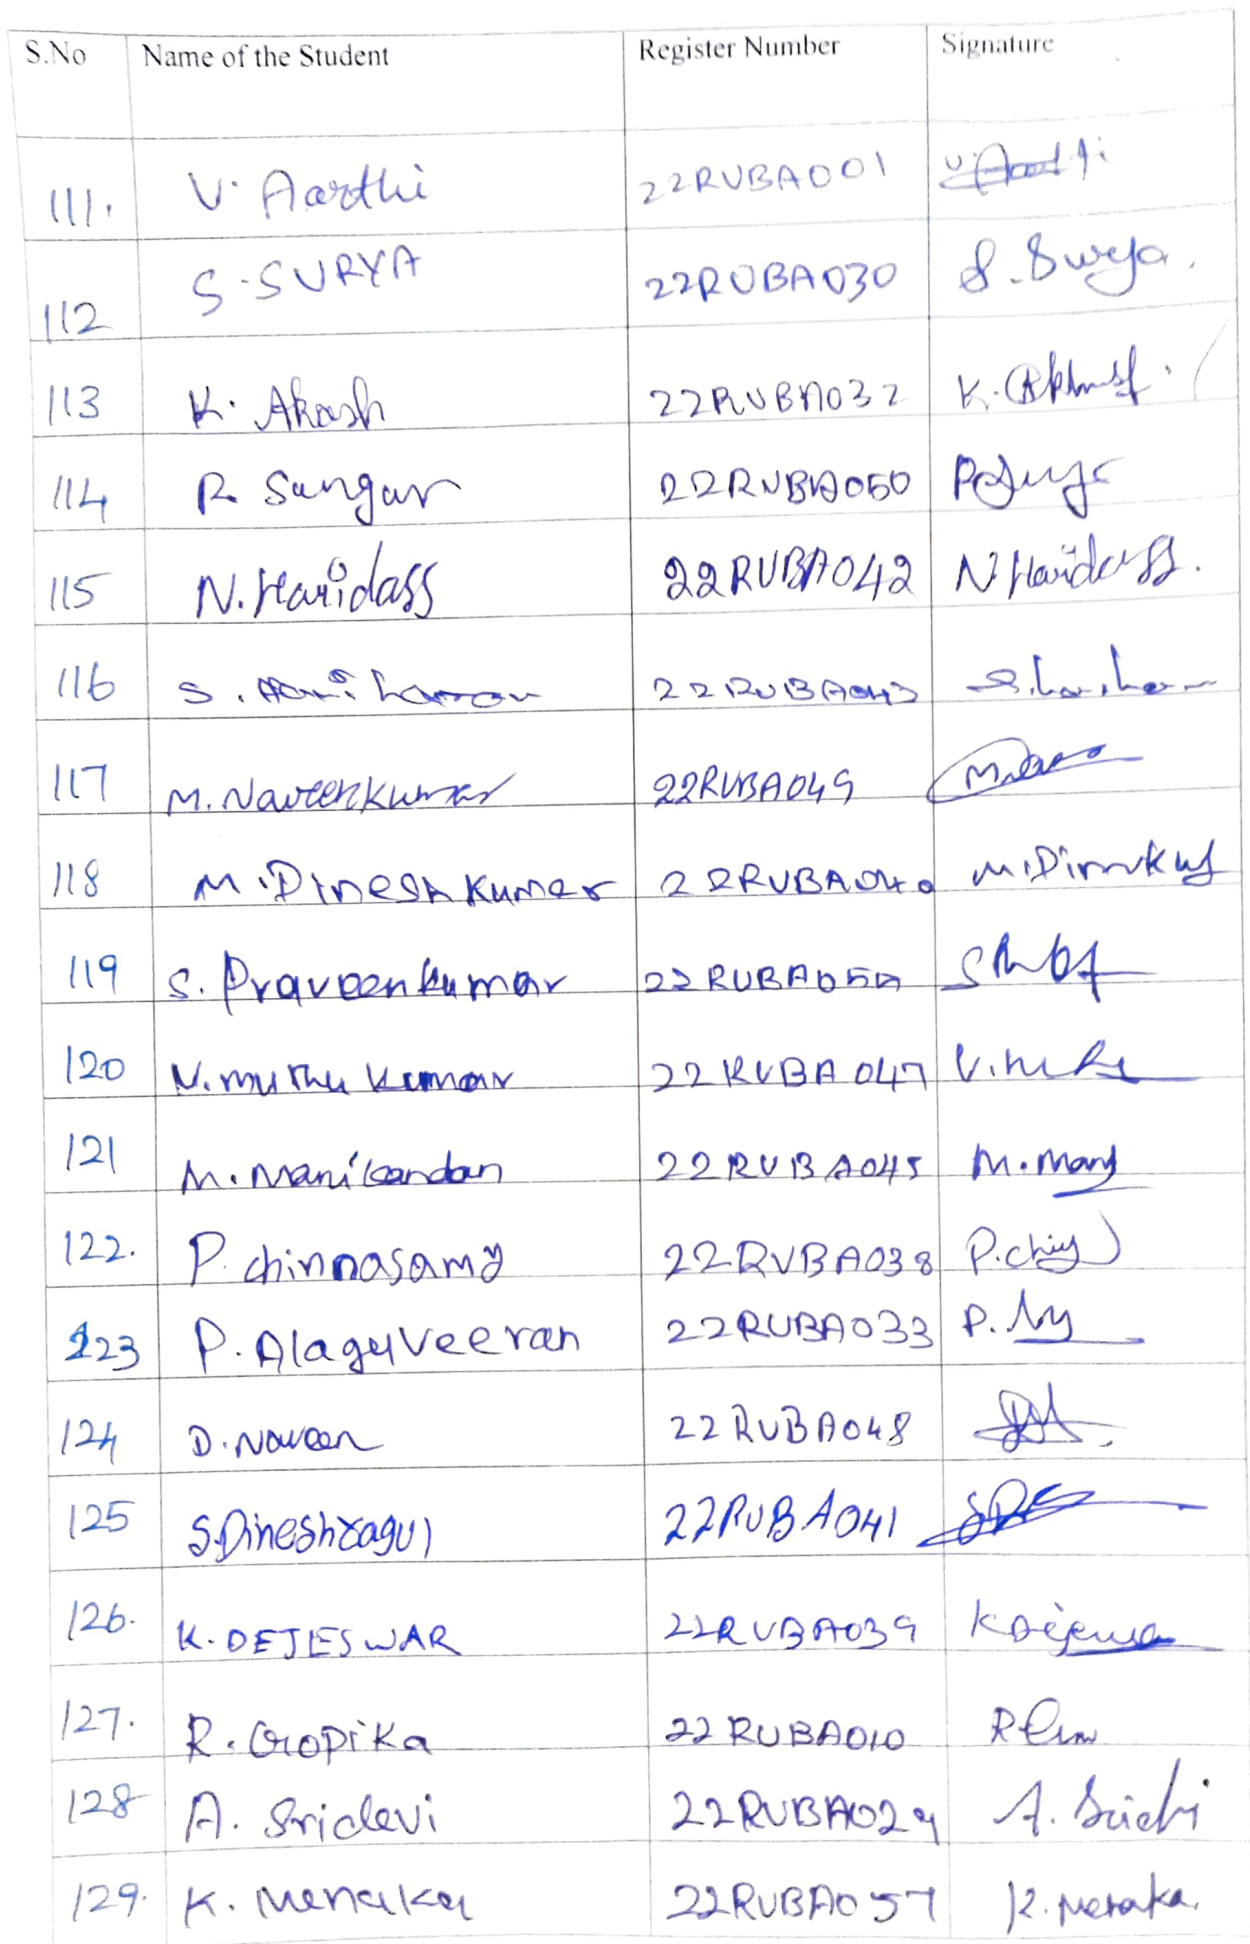 S.No Name of the Student Register Number Signature
111. V. Aarthi 22RUBA001 V. Aarthi
112 S. SURYA 22RUBA030 S. Surya.
113 K. Akash 22RUBA032 K.
114 R. Sangar 22RUBA050
115 N. Haridass 22RUBA042 N Haridass.
116 S. Hariharan 22RUBA043
117 M. Naveenkumar 22RUBA049
118 M. Dinesh Kumar 22RUBA040
119 S. Praveenkumar
120 V. muthu kumar 22RUBA047
121 M. Manikandan 22RUBA045 M. Many
122. P. chinnasamy 22RUBA038
123 P. Alaguveeran 22RUBA033
124 D. Naveen 22RUBA048
125 S. Dineshragul 22RUBA041
126. K. DEJESWAR 22RUBA039
127. R. Gopika 22RUBA010
128 A. Sridevi 22RUBA029 A.
129. K. Menaka 22RUBA057 K. Menaka.